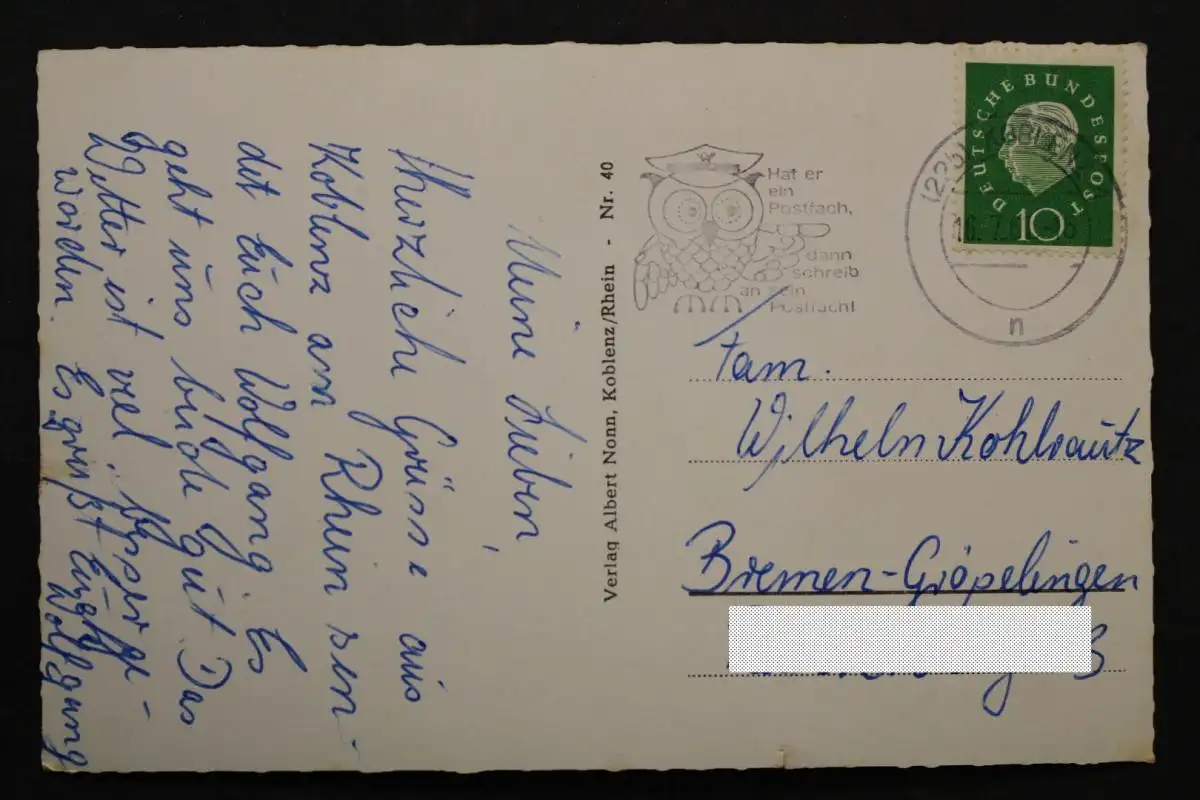 Meine Lieben,
Herzliche Grüsse aus
Koblenz am Rhein sen-
det Euch Wolfgang Es
geht uns beide gut. Das
Wetter ist viel besser ge-
worden. Es grüßt Euch
Wolfgang
Verlag Albert Nonn, Koblenz/Rhein - Nr. 40
Hat er
ein
Postfach,
dann
schreib
an sein
Postfach!
DEUTSCHE BUNDESPOST
10
(22b) KOBLENZ
16.7.
n
Fam.
Wilhelm Kohlrautz
Bremen-Gröpelingen